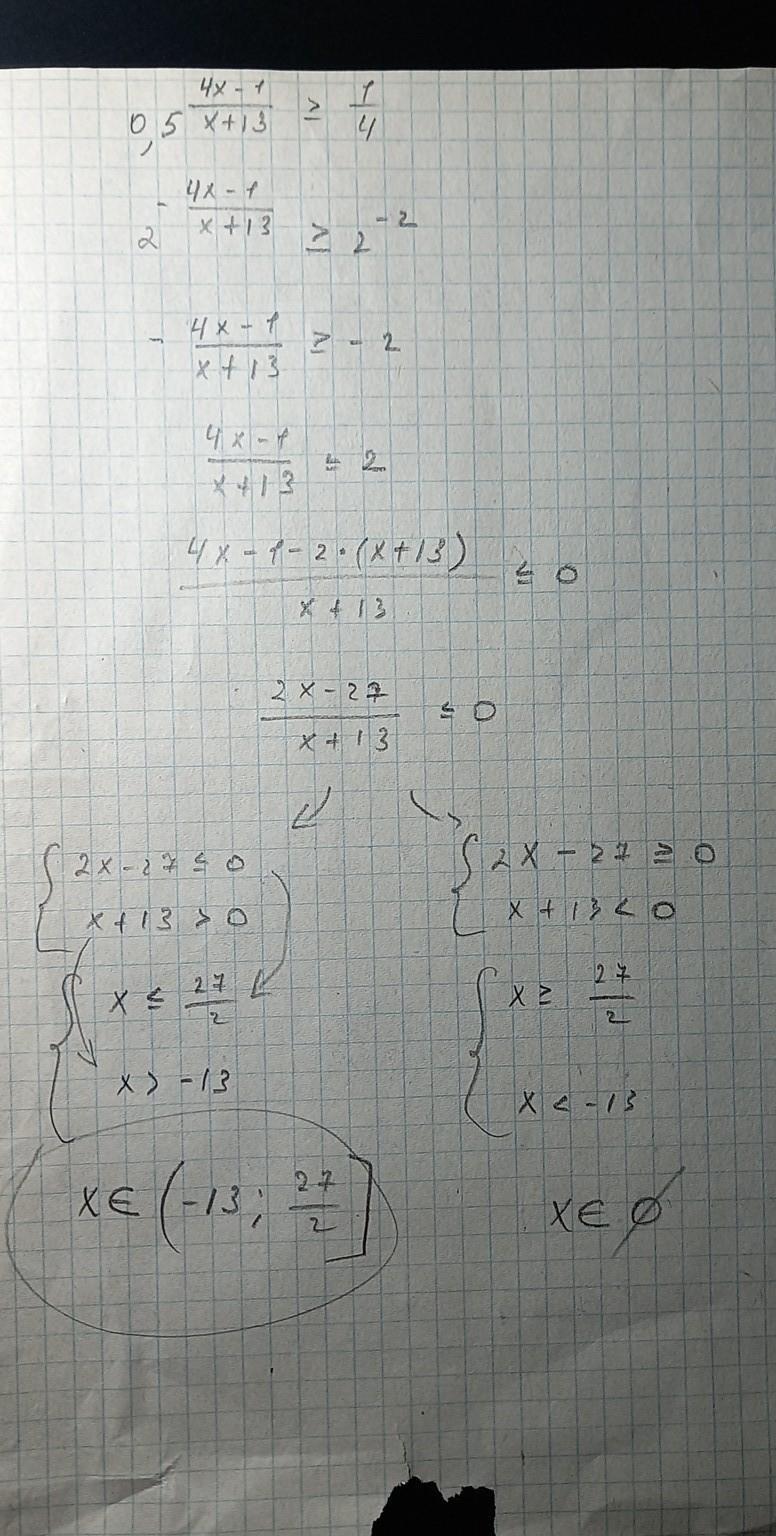 0,5^((4x-1)/(x+13)) ≥ 1/4
2^(-(4x-1)/(x+13)) ≥ 2^(-2)
- (4x-1)/(x+13) ≥ -2
(4x-1)/(x+13) ≤ 2
(4x-1-2·(x+13))/(x+13) ≤ 0
(2x-27)/(x+13) ≤ 0
{ 2x-27 ≤ 0
x+13 > 0
{ x ≤ 27/2
x > -13
x ∈ (-13; 27/2]
{ 2x-27 ≥ 0
x+13 < 0
{ x ≥ 27/2
x < -13
x ∈ ∅